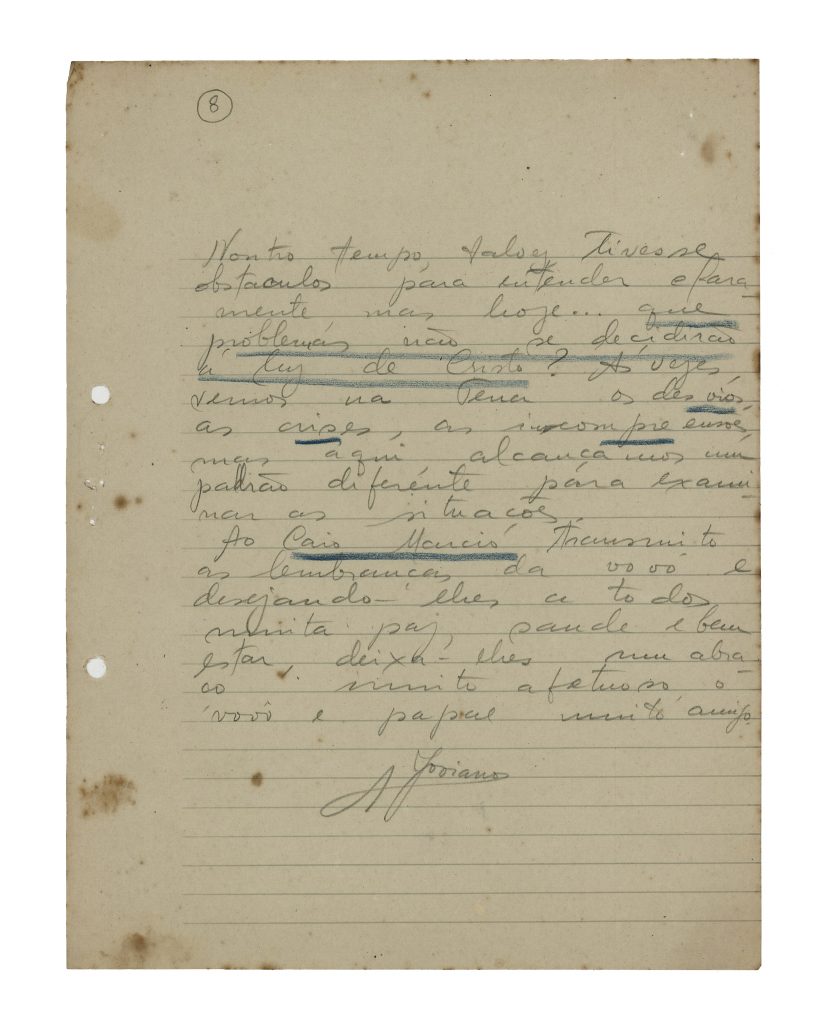 8
Noutro tempo, talvez tivesse
obstaculos para entender clara
mente mas hoje... que
problemas não se decidirão
á luz de Cristo? Ás vezes,
vemos na Terra os desvios,
as crises, as incompreensões
mas aqui alcançamos um
padrão diferente para exami-
nar as situações.
Ao Caio Marcio, transmito
as lembranças da vovó e
desejando-lhes a todos
muita paz, saude e bem
estar, deixa-lhes um abra-
ço muito afetuoso, o
vovô e papae muito amigo
A Joviano